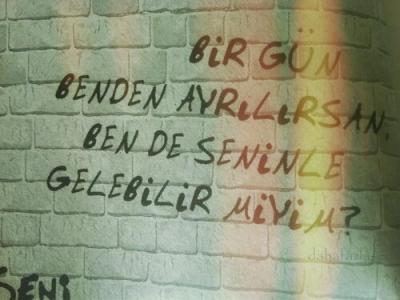 BiR GÜN
BENDEN AYRILIRSAN,
BEN DE SENiNLE
GELEBiLiR MiYiM?
SENi